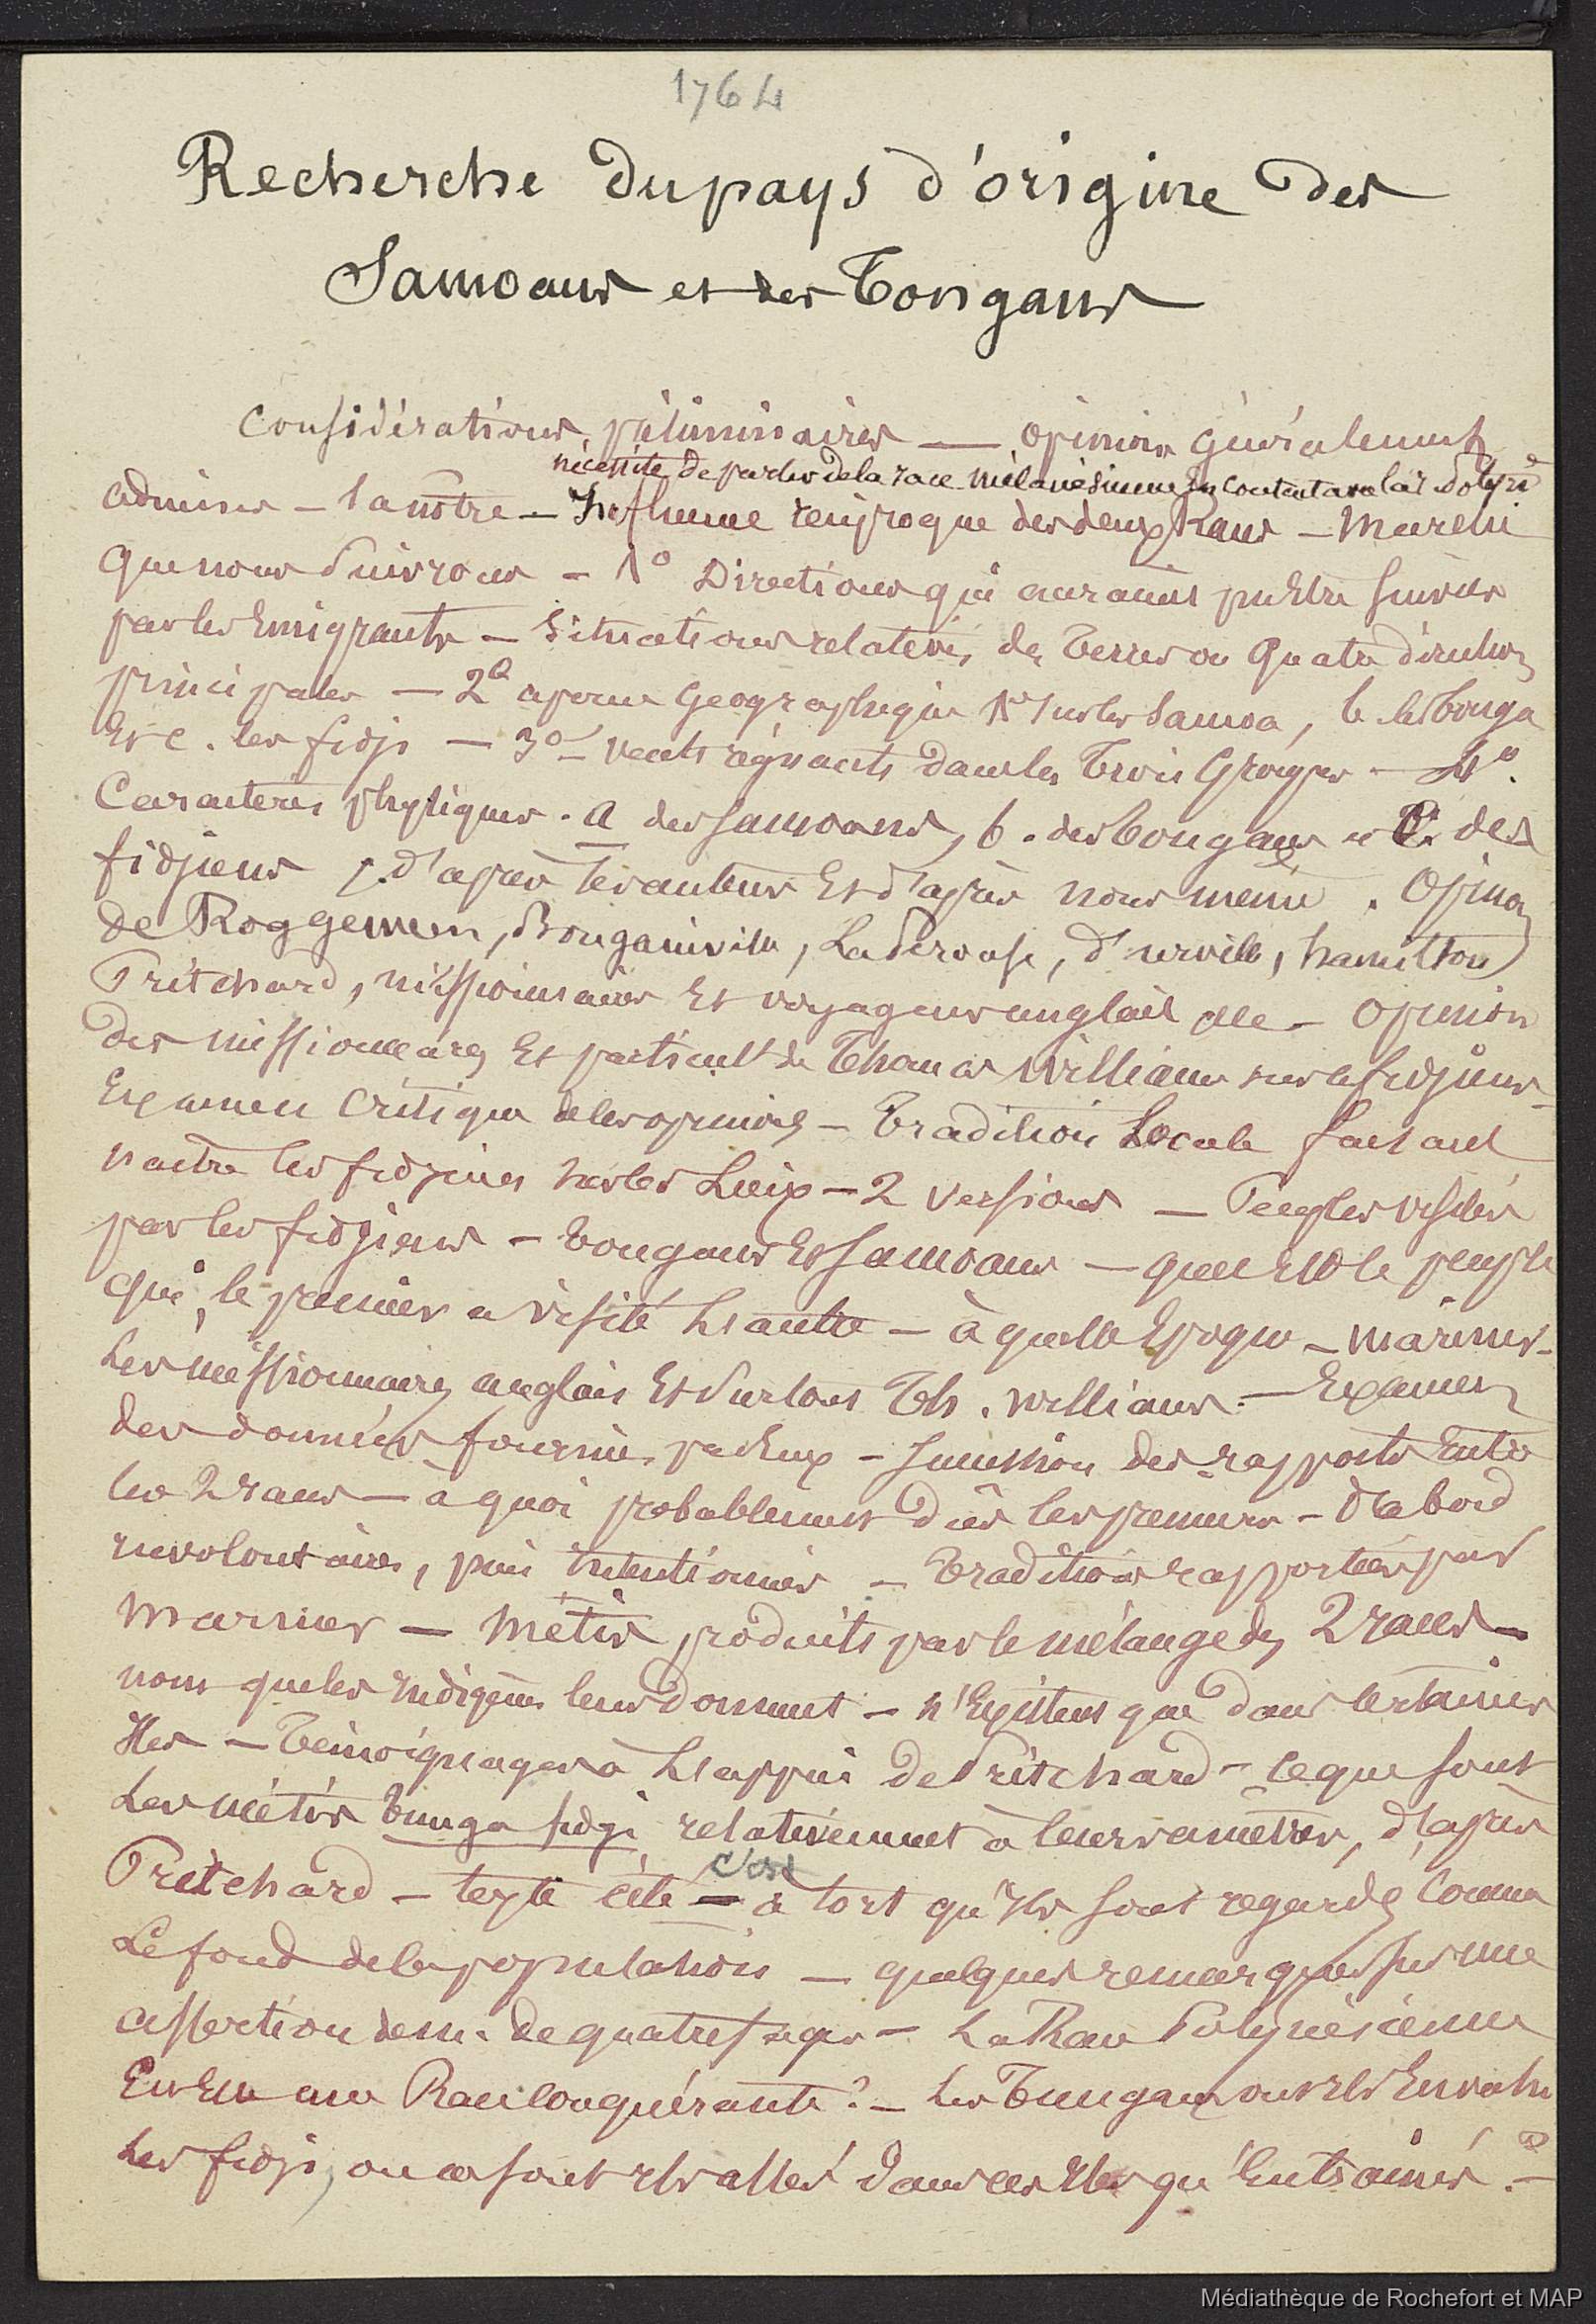 1764
Recherche du pays d'origine des
Samoans et des Tongans
Considérations préliminaires — opinion généralement
nécessité de parler de la race mélanésienne en contact avec la race Polyn
admise — la nôtre — Influence réciproque des deux Races — Marche
que nous suivrons — 1° Directions qui auraient pu être suivies
par les Emigrants — Situations relatives des Terres ou quatre directions
principales — 2° aperçu Géographique 1° sur les Samoa, b. les Tonga
et c. les fidji — 3° — vents régnants dans les Trois Groupes — 4°.
Caractères physiques. a des Samoans, b. des Tongans et C. des
fidjiens, d'après les auteurs et d'après nous même. Opinion
de Roggeween, Bougainville, La Pérouse, d'urville, hamilton
Pritchard, missionnaires et voyageurs anglais — Opinion
des missionnaires et particult de Thomas Williams sur les fidjiens —
Examen critique de les opinions — Tradition Locale faisant
naître les fidjiens sur les Lieux — 2 versions — Peuples visités
par les fidjiens — Tongans et Samoans — quel est le peuple
qui, le premier a visité L'autre — à quelle Epoque — mariner —
Les missionnaires anglais et surtout Th. williams. — Examen
des données fournies par Eux — succession des rapports entre
les 2 races — à quoi probablement dûs les premiers — d'abord
involontaires, puis intentionnés — Tradition rapportée par
Mariner — Métis produits par le mélange des 2 races —
noms que les indigènes leur donnent — n'Existent que dans certaines
Iles — Témoignages à L'appui de Pritchard — ce que sont
Les métis Tunga fidgi, relativement à leurs ancêtres, d'après
Pritchard — texte cité — c'est à tort qu'ils sont regardés Comme
Le fond de la population — quelques remarques sur une
assertion de m. de quatrefages — La Race Polynésienne
Est Elle une Race Conquérante? — Les Tungans ont-ils Envahi
Les fidji, ou ne sont ils allés dans ces Iles qu'Entraînés? —
Médiathèque de Rochefort et MAP